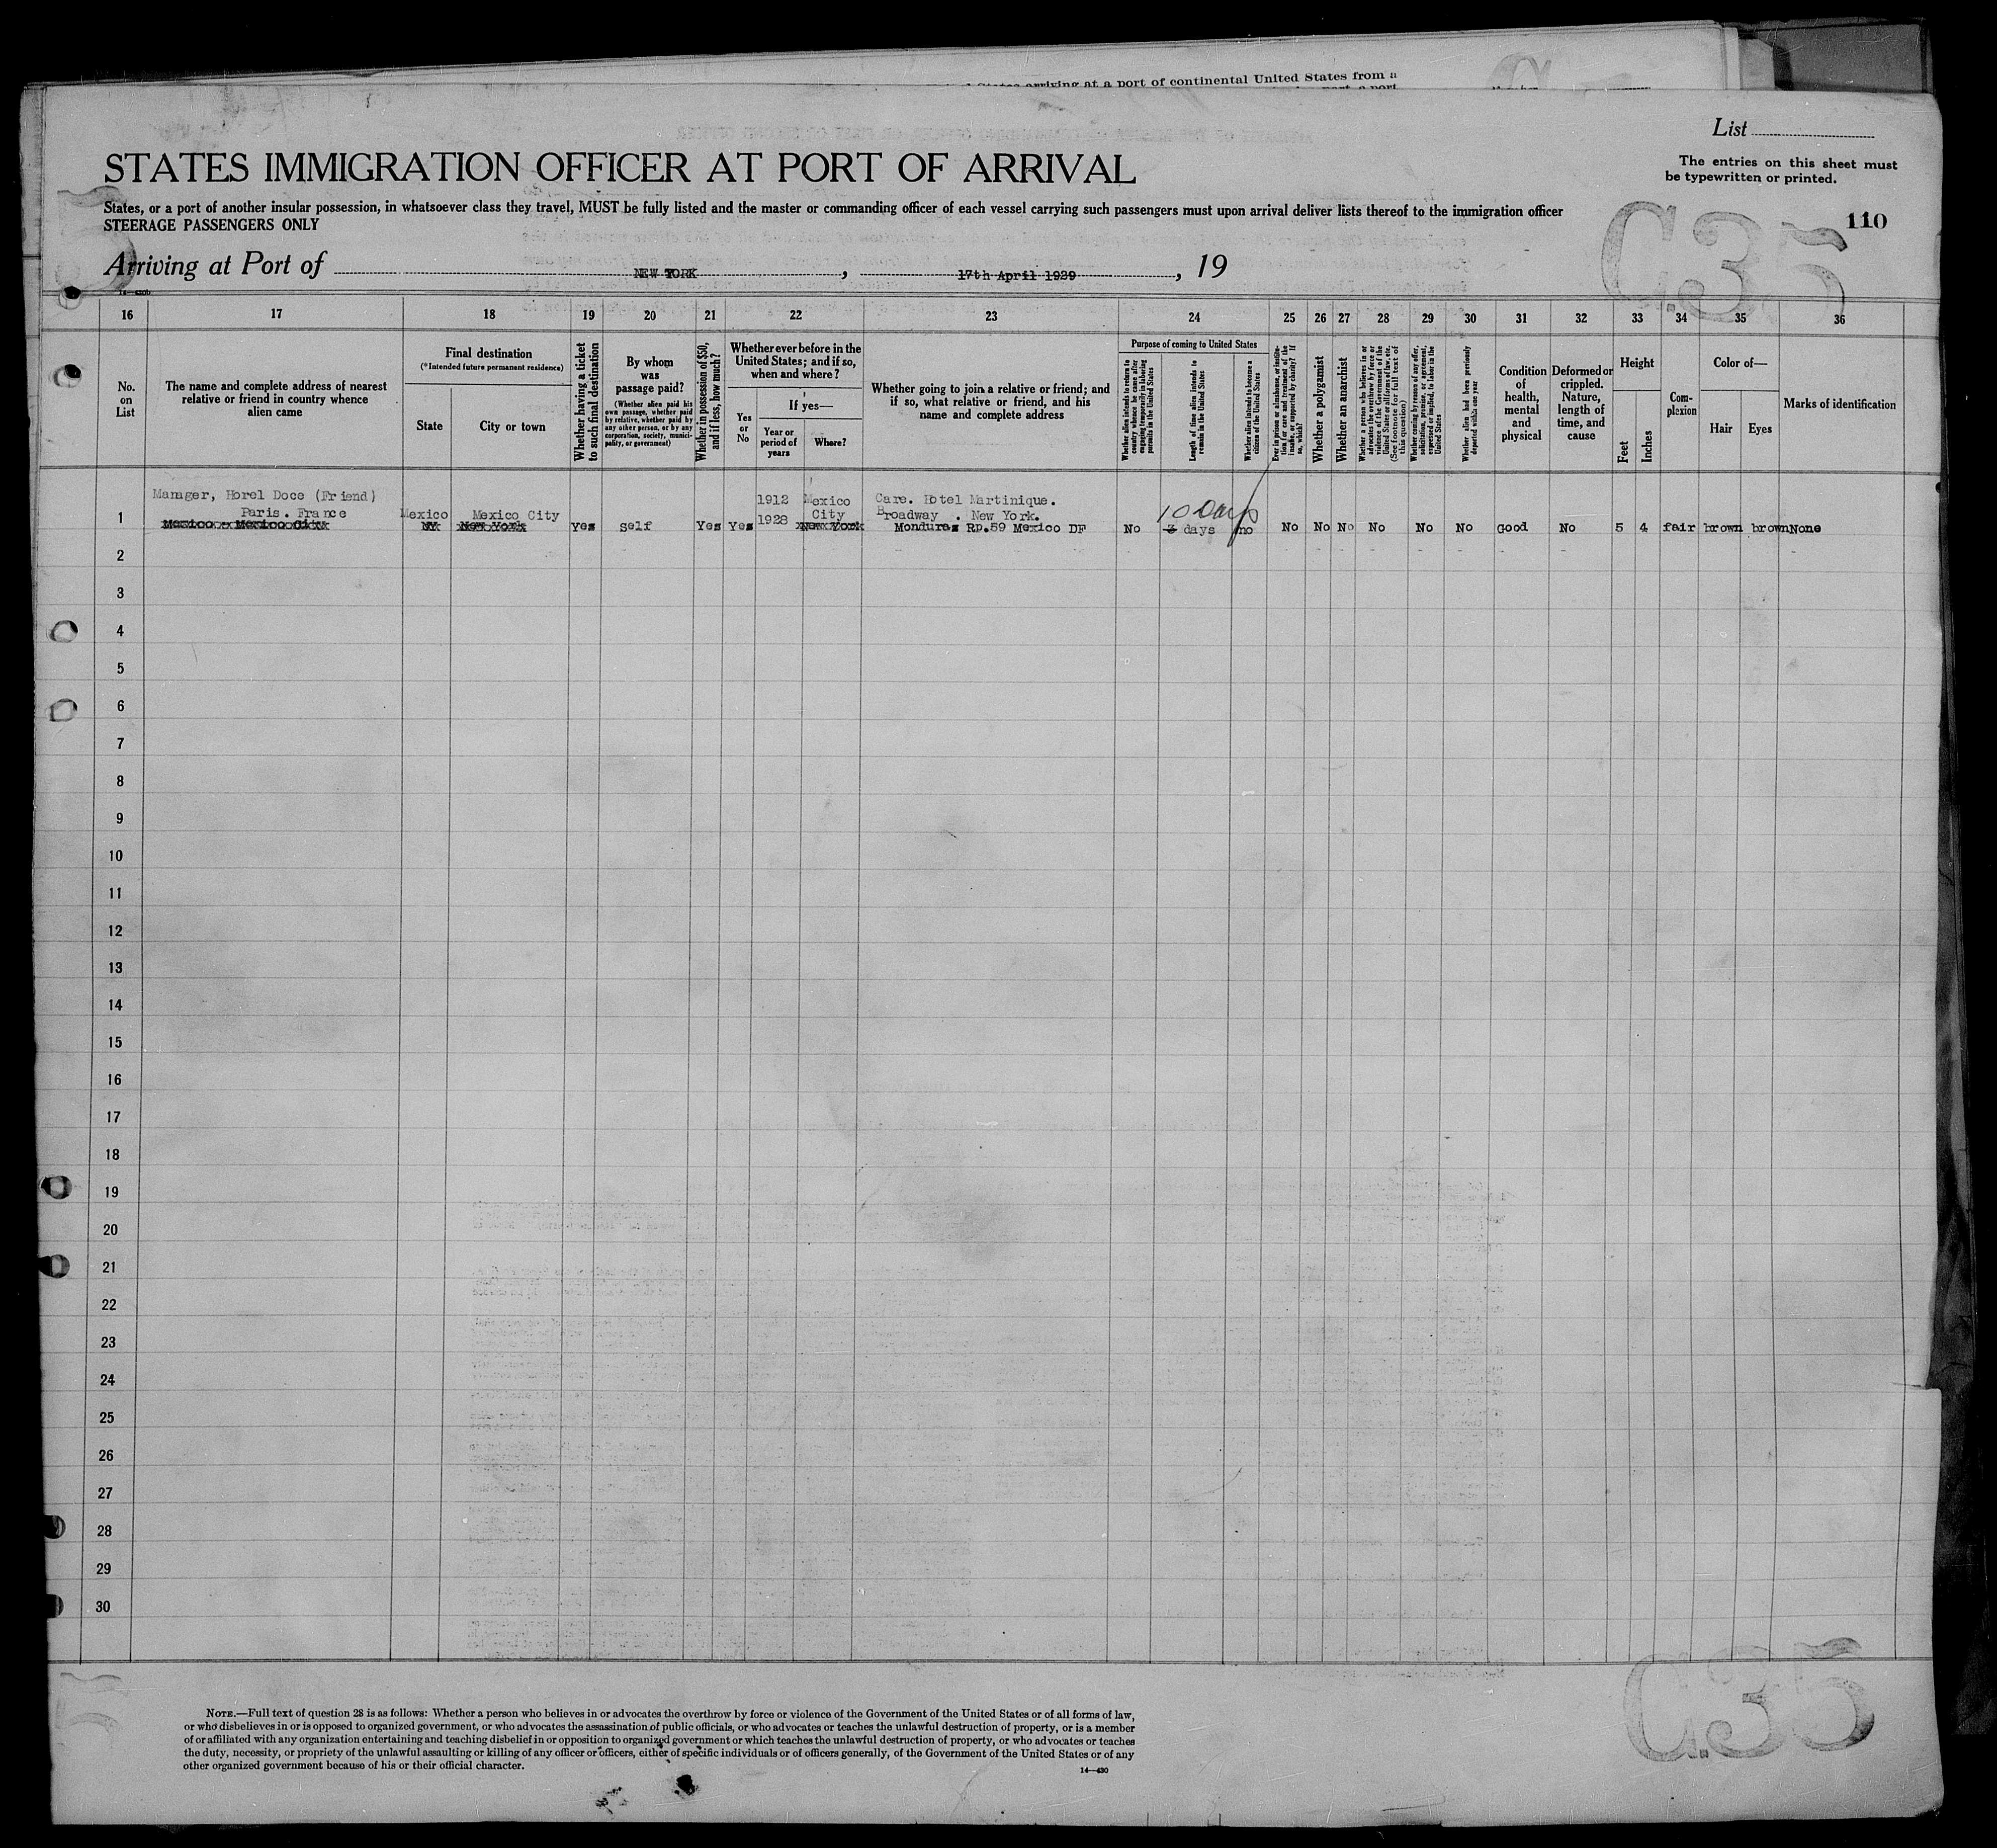 States arriving at a port of continental United States from a
List
STATES IMMIGRATION OFFICER AT PORT OF ARRIVAL
The entries on this sheet must
be typewritten or printed.
States, or a port of another insular possession, in whatsoever class they travel, MUST be fully listed and the master or commanding officer of each vessel carrying such passengers must upon arrival deliver lists thereof to the immigration officer
STEERAGE PASSENGERS ONLY
110
C.35
Arriving at Port of NEW YORK, 17th April 1929, 19
16 17 18 19 20 21 22 23 24 25 26 27 28 29 30 31 32 33 34 35 36
No. on List
The name and complete address of nearest relative or friend in country whence alien came
Final destination
(*Intended future permanent residence)
State
City or town
Whether having a ticket to such final destination
By whom was passage paid?
(Whether alien paid his own passage, whether paid by relative, whether paid by any other person, or by any corporation, society, municipality, or government)
Whether in possession of $50, and if less, how much?
Whether ever before in the United States; and if so, when and where?
Yes or No
If yes—
Year or period of years
Where?
Whether going to join a relative or friend; and if so, what relative or friend, and his name and complete address
Purpose of coming to United States
Whether alien intends to return to country whence he came after engaging temporarily in laboring pursuits in the United States
Length of time alien intends to remain in the United States
Whether alien intends to become a citizen of the United States
Ever in prison or almshouse, or institution for care and treatment of the insane, or supported by charity? If so, which?
Whether a polygamist
Whether an anarchist
Whether a person who believes in or advocates the overthrow by force or violence of the Government of the United States or all forms of law, etc. (See footnote for full text of this question)
Whether coming by reason of any offer, solicitation, promise, or agreement, expressed or implied, to labor in the United States
Whether alien had been previously deported within one year
Condition of health, mental and physical
Deformed or crippled. Nature, length of time, and cause
Height
Feet
Inches
Complexion
Color of—
Hair
Eyes
Marks of identification
Manager, Horel Doce (Friend) 1912 Mexico Care. Hotel Martinique.
Paris. France Mexico Mexico City 1928 City Broadway . New York. 10 Days
1 Mexico - Mexico City NY New York Yes Self Yes Yes New York Honduras RP.59 Mexico DF No 3 days no No No No No No No Good No 5 4 fair brown brown None
2
3
4
5
6
7
8
9
10
11
12
13
14
15
16
17
18
19
20
21
22
23
24
25
26
27
28
29
30
C.35
NOTE.—Full text of question 28 is as follows: Whether a person who believes in or advocates the overthrow by force or violence of the Government of the United States or of all forms of law,
or who disbelieves in or is opposed to organized government, or who advocates the assassination of public officials, or who advocates or teaches the unlawful destruction of property, or is a member
of or affiliated with any organization entertaining and teaching disbelief in or opposition to organized government or which teaches the unlawful destruction of property, or who advocates or teaches
the duty, necessity, or propriety of the unlawful assaulting or killing of any officer or officers, either of specific individuals or of officers generally, of the Government of the United States or of any
other organized government because of his or their official character.
14—430